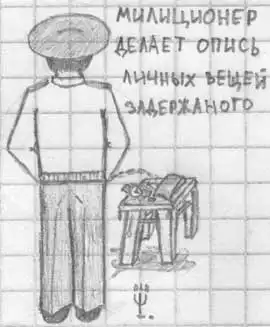 МИЛИЦИОНЕР
ДЕЛАЕТ ОПИСЬ
ЛИЧНЫХ ВЕЩЕЙ
ЗАДЕРЖАНОГО